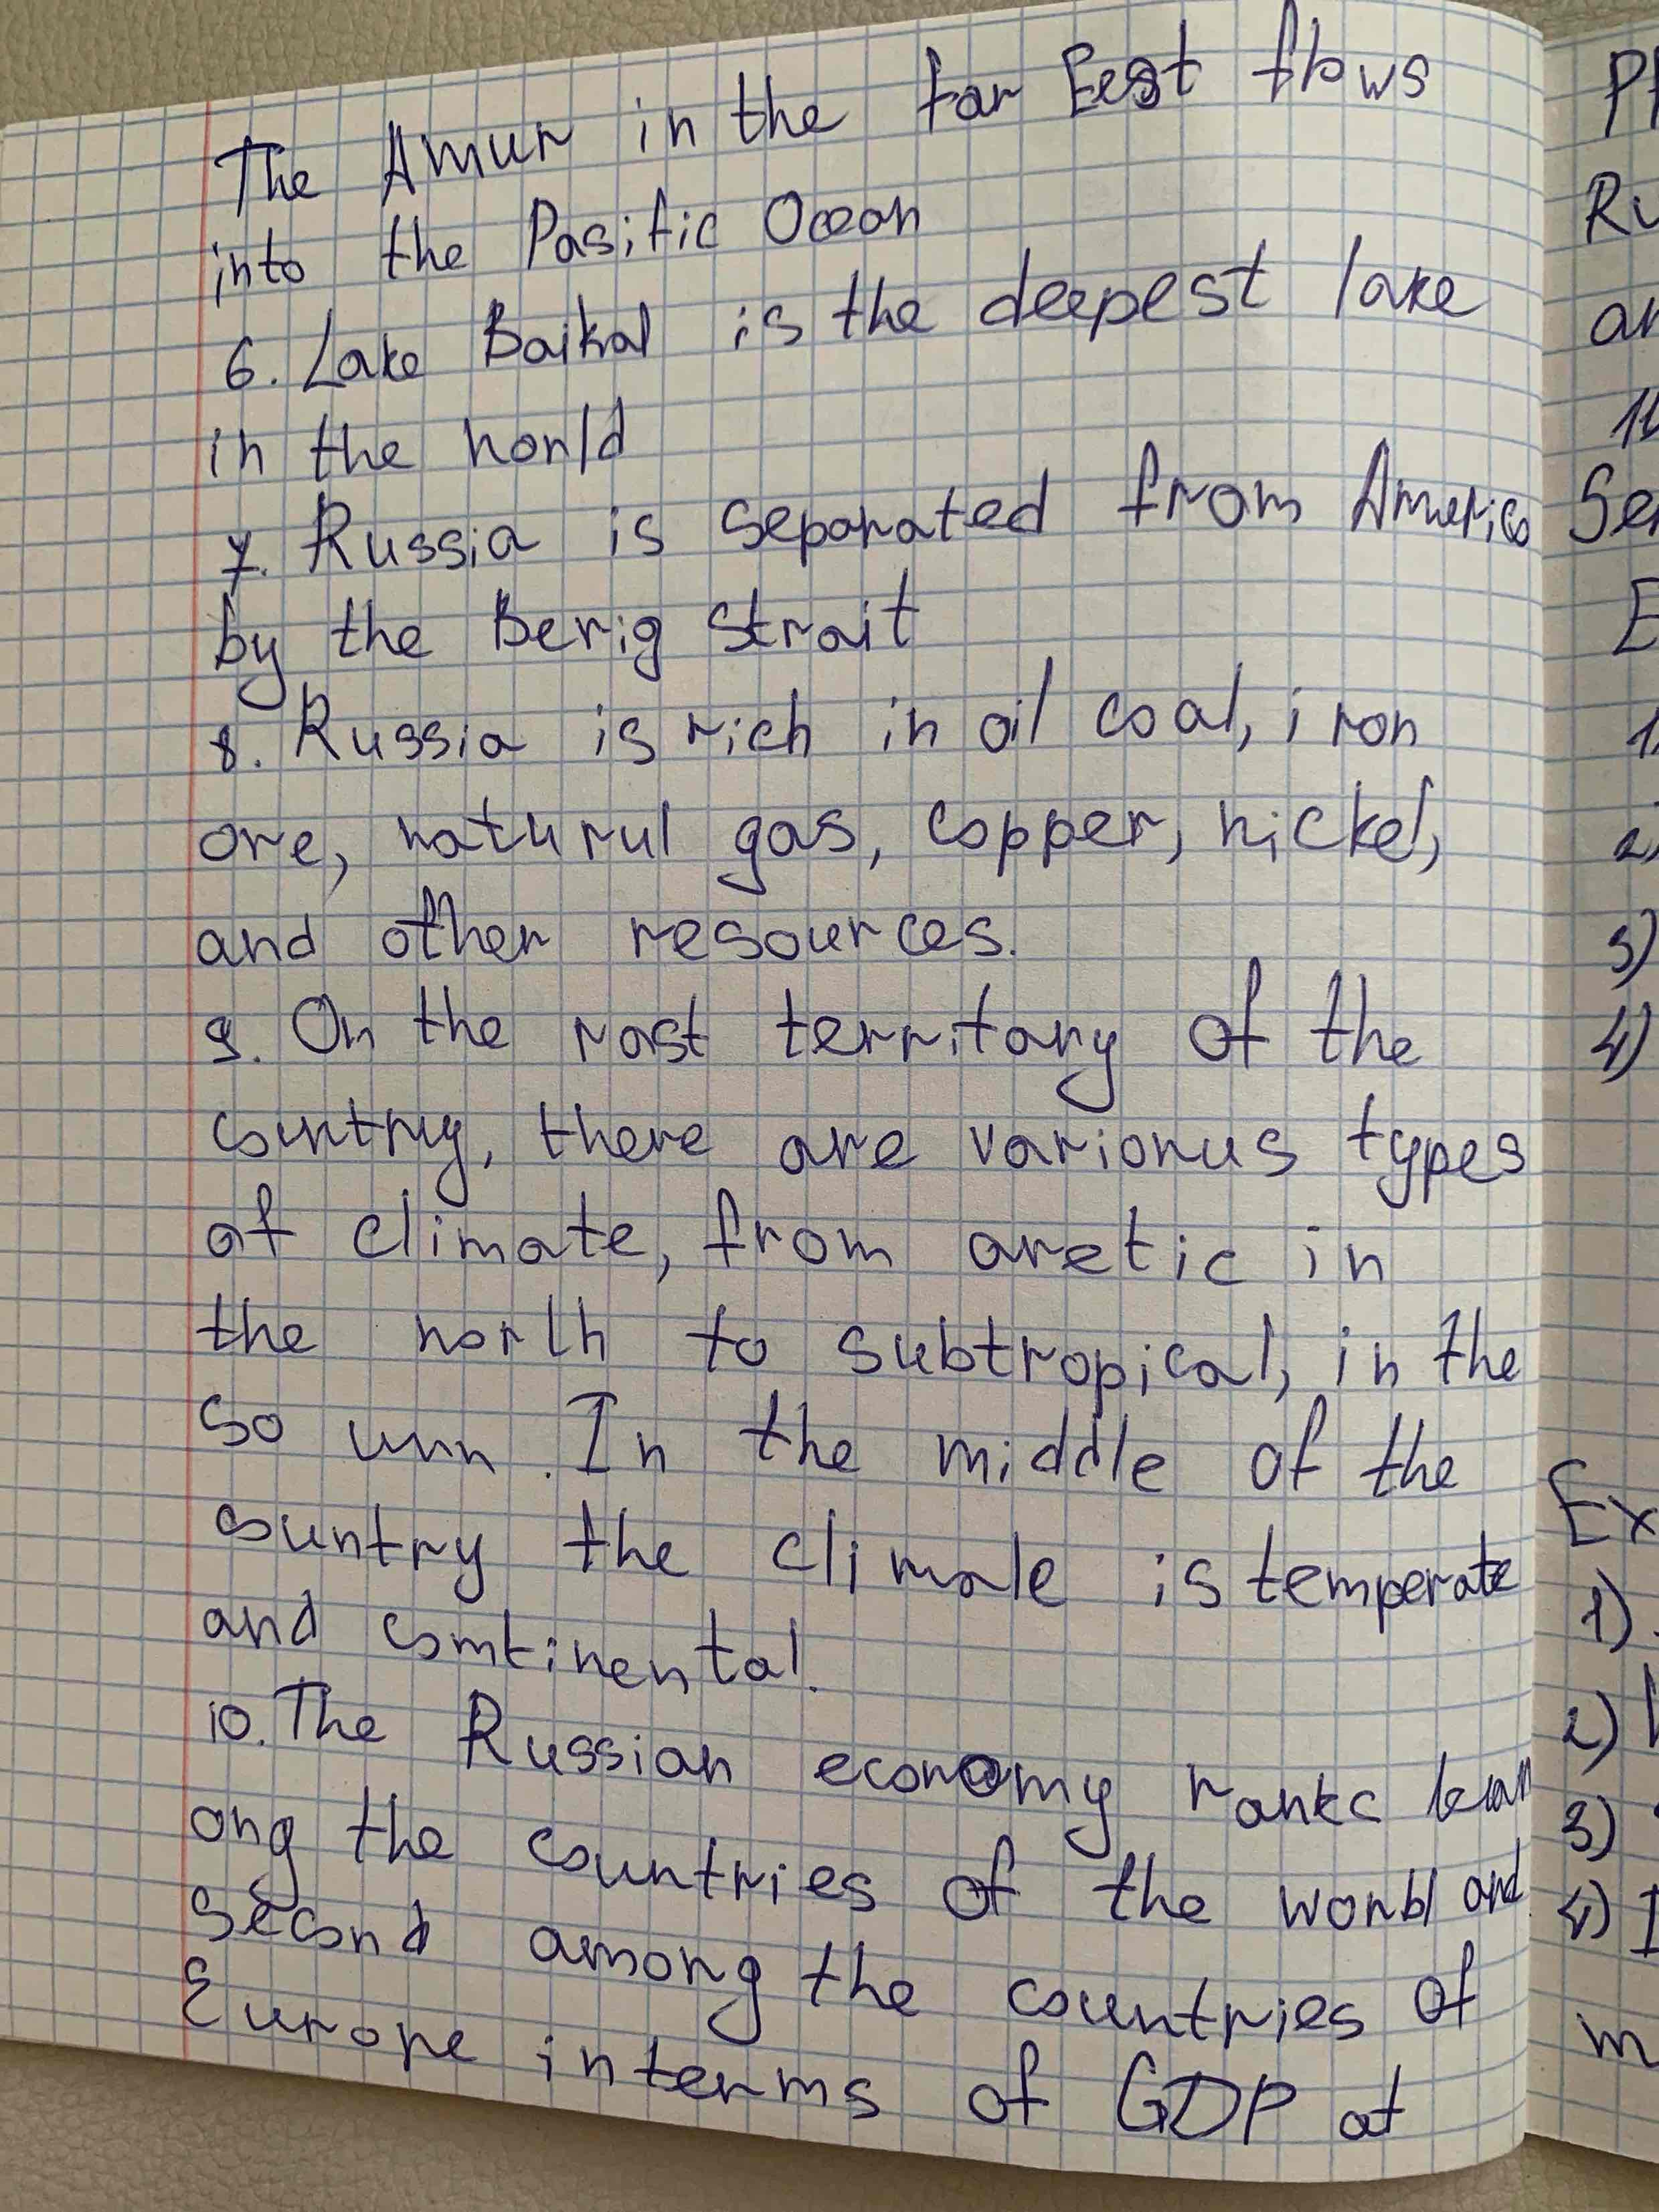 The Amur in the far East flows
into the Pasific Ocean
6. Lake Baikal is the deepest lake
in the horld
7. Russia is separated from America
by the Berig Strait
8. Russia is rich in oil coal, iron
ore, naturul gas, copper, nickel,
and other resources.
9. On the rast territory of the
country, there are varionus types
of climate, from arctic in
the north to subtropical, in the
so unn. In the middle of the
country the climale is temperate
and comtinental.
10. The Russian economy ranks
ong the countries of the world and
second among the countries of
Europe in terms of GDP at
Pl
Ru
an
11
Ser
E
1.
2)
3)
4)
Ex
1)
2)
3)
4) I
m